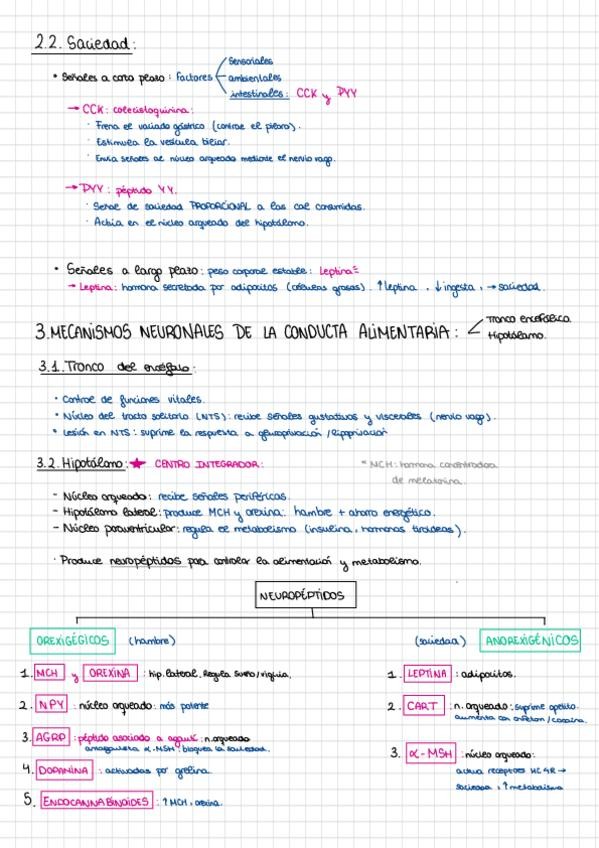 2.2. Saciedad:
• Señales a corto plazo: factores
sensoriales
ambientales
intestinales: CCK y PYY
→ CCK: colecistoquinina:
· Frena el vaciado gástrico (contrae el píloro).
· Estimula la vesícula biliar.
· Envía señales al núcleo arqueado mediante el nervio vago.
→ PYY: péptido YY.
· Señal de saciedad PROPORCIONAL a las cal consumidas.
· Actúa en el núcleo arqueado del hipotálamo.
• Señales a largo plazo: peso corporal estable: leptina
→ Leptina: hormona secretada por adipocitos (células grasas). ↑leptina, ↓ingesta, → saciedad.
3. MECANISMOS NEURONALES DE LA CONDUCTA ALIMENTARIA:
Tronco encefálico.
Hipotálamo.
3.1. Tronco del encéfalo:
• Control de funciones vitales.
• Núcleo del tracto solitario (NTS): recibe señales gustativas y viscerales (nervio vago).
• Lesión en NTS: suprime la respuesta a glucoprivación/lipoprivación
3.2. Hipotálamo: ★ CENTRO INTEGRADOR:
* MCH: hormona concentradora
de melanina.
- Núcleo arqueado: recibe señales periféricas.
- Hipotálamo lateral: produce MCH y orexina: hambre + ahorro energético.
- Núcleo paraventricular: regula el metabolismo (insulina, hormonas tiroideas).
· Produce neuropéptidos para controlar la alimentación y metabolismo.
NEUROPÉPTIDOS
OREXIGÉGICOS (hambre)
(saciedad) ANOREXIGÉNICOS
1. MCH y OREXINA: hip. lateral. Regula sueño/vigilia.
1. LEPTINA: adipocitos.
2. NPY: núcleo arqueado: más potente
2. CART: n. arqueado: suprime apetito.
aumenta con anfetam/cocaína.
3. AGRP: péptido asociado a agutí: n. arqueado
antagonista α-MSH: bloquea la saciedad.
3. α-MSH: núcleo arqueado:
activa receptores MC4R →
saciedad, ↑metabolismo
4. DOPAMINA: activadas por grelina.
5. ENDOCANNABINOIDES: ↑MCH, orexina.